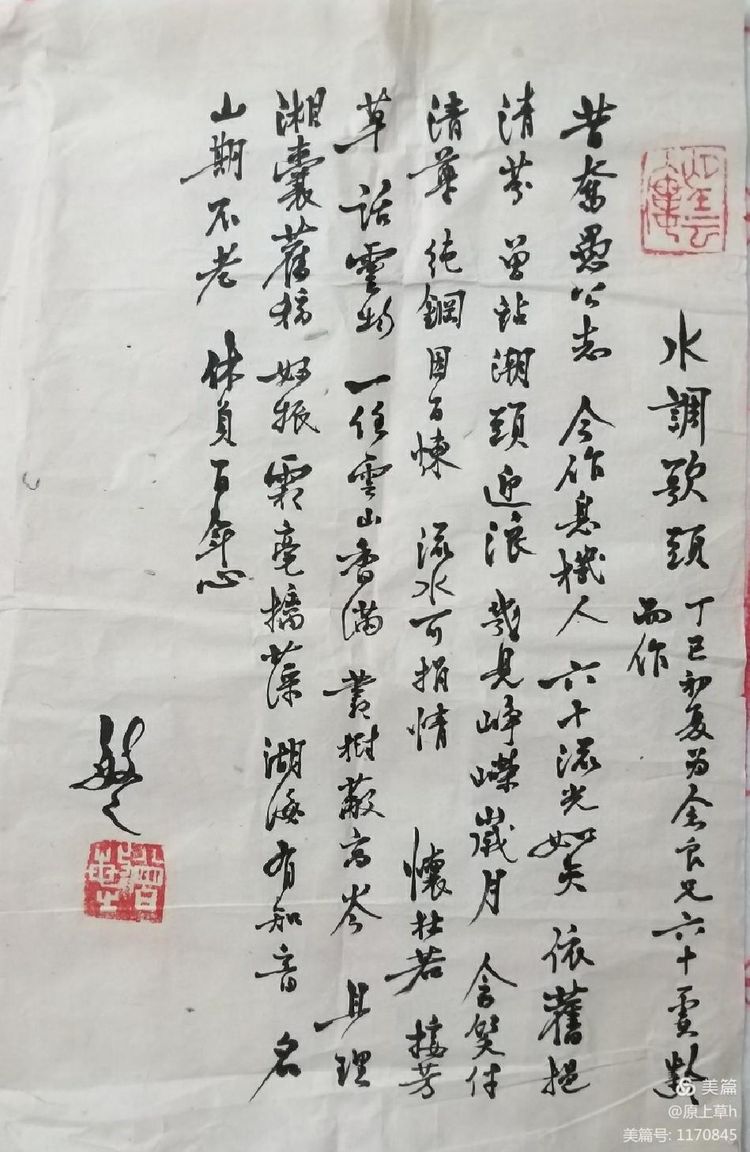 水調歌頭 丁巳初夏为全良兄六十壽齡
而作
昔奮愚公志 今作息機人 六十流光如矢 依舊挹
清芬 曾站潮頭迎浪 幾見崢嶸歲月 含笑付
清尊 純鋼因百煉 流水可捐情 懷杜若 接芳
草 話靈均 一任雲山香滿 叢樹蔽高岑 且理
湘囊舊稿 好振霜毫摛藻 湖海有知音 名
山期不老 休負百年心
美篇
@原上草h
美篇号: 1170845